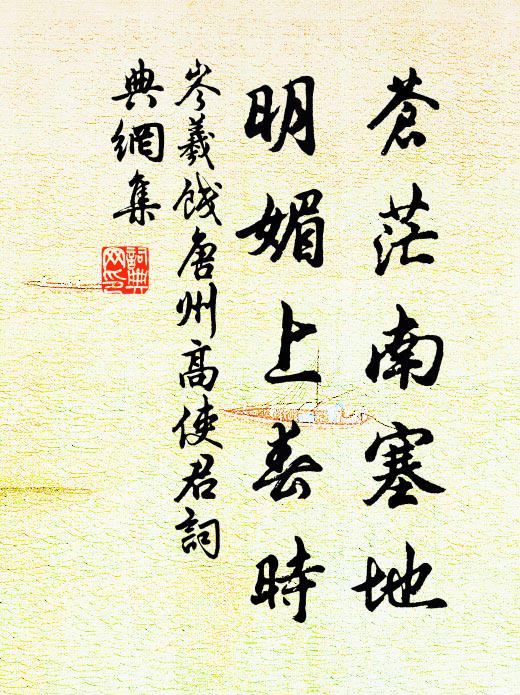 蒼茫南塞地
明媚上春時
岑羲餞唐州高使君詞
典網集
詞典网印